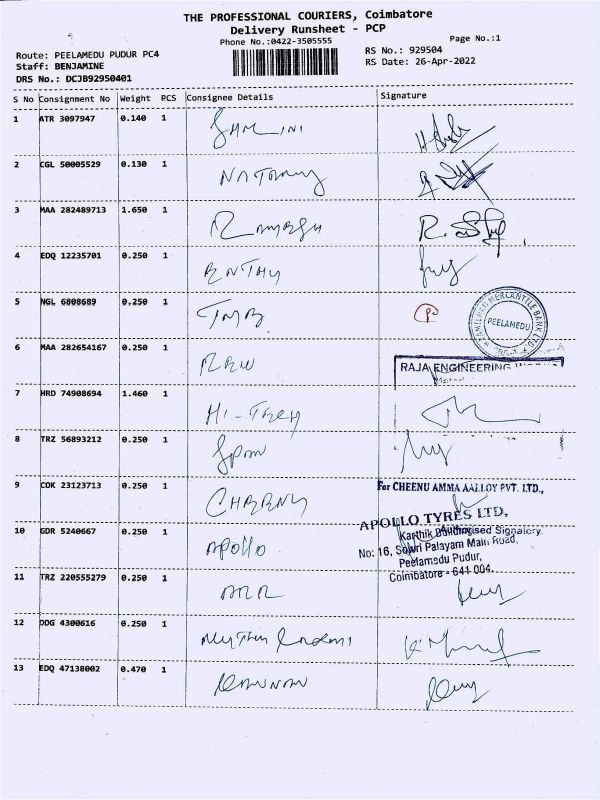 THE PROFESSIONAL COURIERS, Coimbatore
Delivery Runsheet - PCP
Phone No.:0422-3505555
Page No.:1
Route: PEELAMEDU PUDUR PC4
Staff: BENJAMINE
DRS No.: DCJB92950401
RS No.: 929504
RS Date: 26-Apr-2022
S No Consignment No Weight PCS Consignee Details Signature
1 ATR 3097947 0.140 1 SHALINI
2 CGL 50005529 0.130 1
3 MAA 282489713 1.650 1 RAMYESH
4 EDQ 12235701 0.250 1
5 NGL 6808689 0.250 1 TMB
TAMILNAD MERCANTILE BANK LTD.
PEELAMEDU
6 MAA 282654167 0.250 1
RAJA ENGINEERING
7 HRD 74908694 1.460 1 HI-TECH
8 TRZ 56893212 0.250 1
9 COK 23123713 0.250 1
For CHEENU AMMA AALLOY PVT. LTD.,
Authorised Signatory
10 GDR 5240667 0.250 1 Apollo
APOLLO TYRES LTD,
Karthik Buildings
No: 16, Sowri Palayam Main Road,
Peelamedu Pudur,
Coimbatore - 641 004.
11 TRZ 220555279 0.250 1
12 DDG 4300616 0.250 1
13 EDQ 47138002 0.470 1